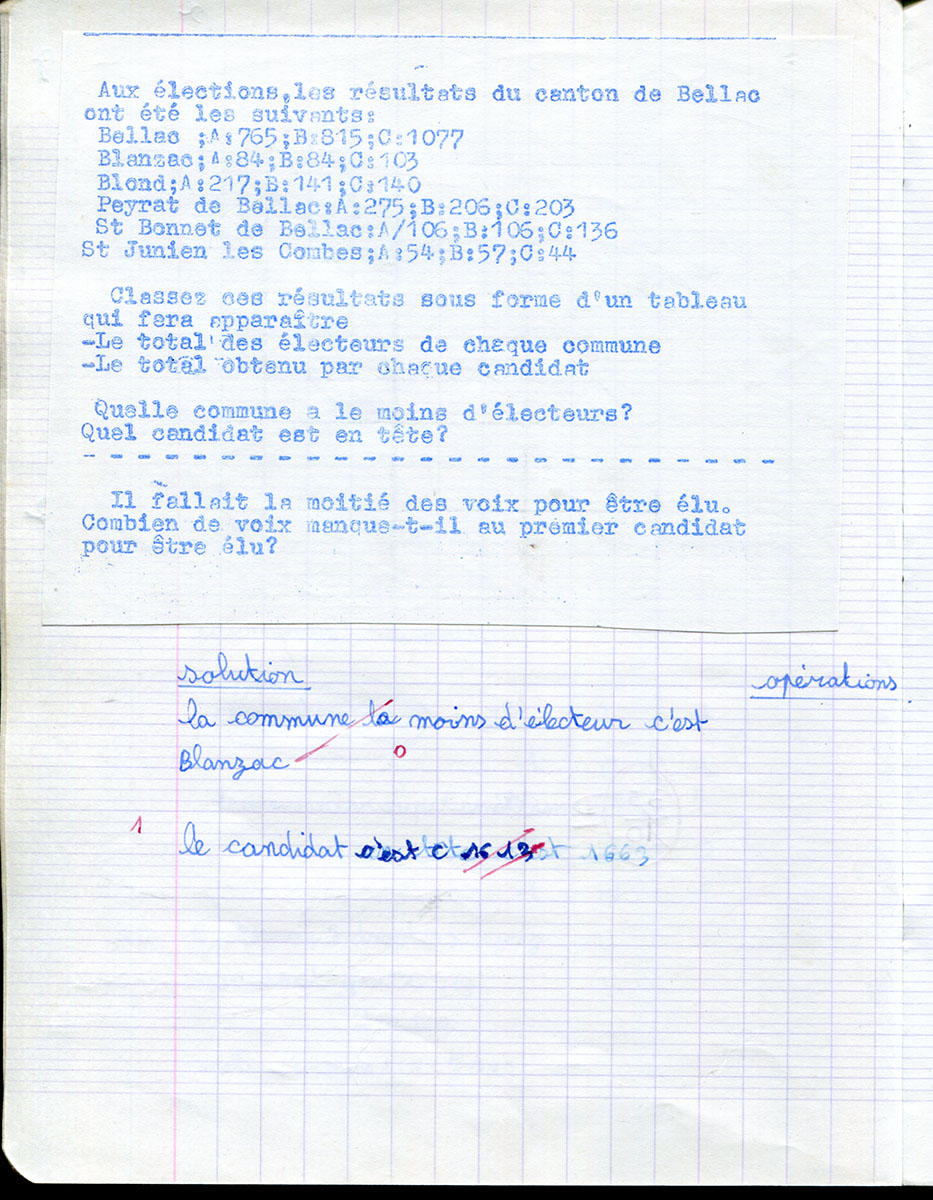 Aux élections,les résultats du canton de Bellac
ont été les suivants:
Bellac ;A:765;B:815;C:1077
Blanzac;A:84;B:84;C:103
Blond;A:217;B:141;C:140
Peyrat de Bellac:A:275;B:206;C:203
St Bonnet de Bellac:A/106;B:106;C:136
St Junien les Combes;A:54;B:57;C:44
Classez ces résultats sous forme d'un tableau
qui fera apparaître
-Le total des électeurs de chaque commune
-Le total obtenu par chaque candidat
Quelle commune a le moins d'électeurs?
Quel candidat est en tête?
- - - - - - - - - - - - - - - - - - - - - - - -
Il fallait la moitié des voix pour être élu.
Combien de voix manque-t-il au premier candidat
pour être élu?
solution
opérations
la commune la moins d'électeur c'est
Blanzac
0
1
le candidat c'est C 16 13 st 1663